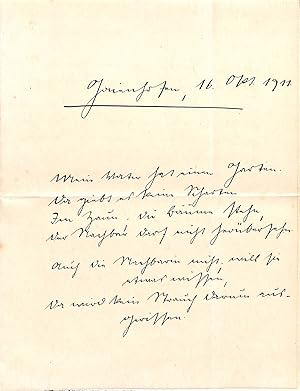 Gaienhofen, 16. Okt. 1911
Mein Vater hat einen Garten.
Da giebt es keine Scharten
Im Zaun. Die Bäume stehn,
Der Nachbar darf nicht herübersehn
Auch die Nachbarin nicht. will sie
etwas wissen,
Da wird kein Strauch darum aus-
gerissen.